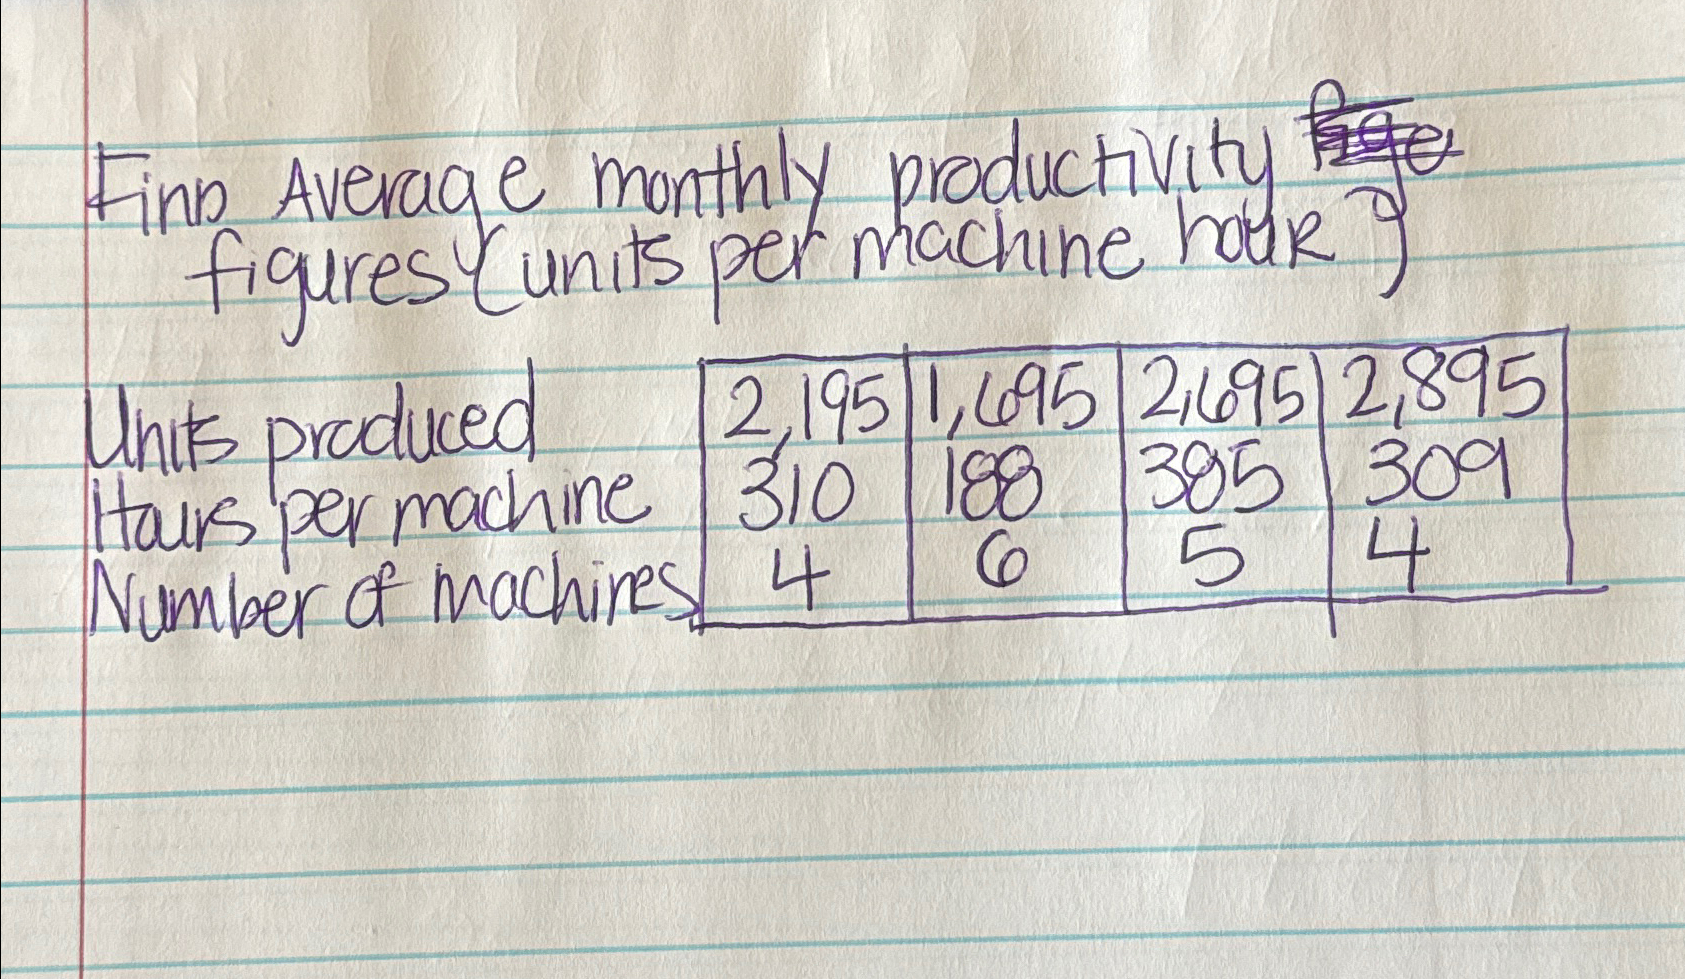 Find Average monthly productivity
figures (units per machine hour)
Units produced 2,195 1,695 2,695 2,895
Hours per machine 310 188 385 309
Number of machines 4 6 5 4